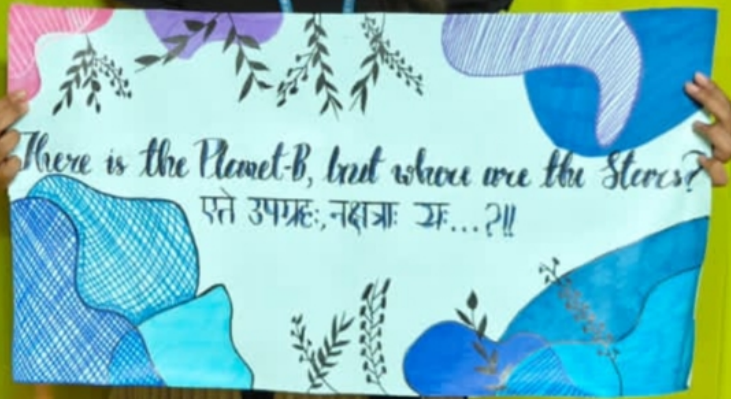 There is the Planet-B, but where are the Stars?
एते उपग्रहः, नक्षत्राः यः...?!!